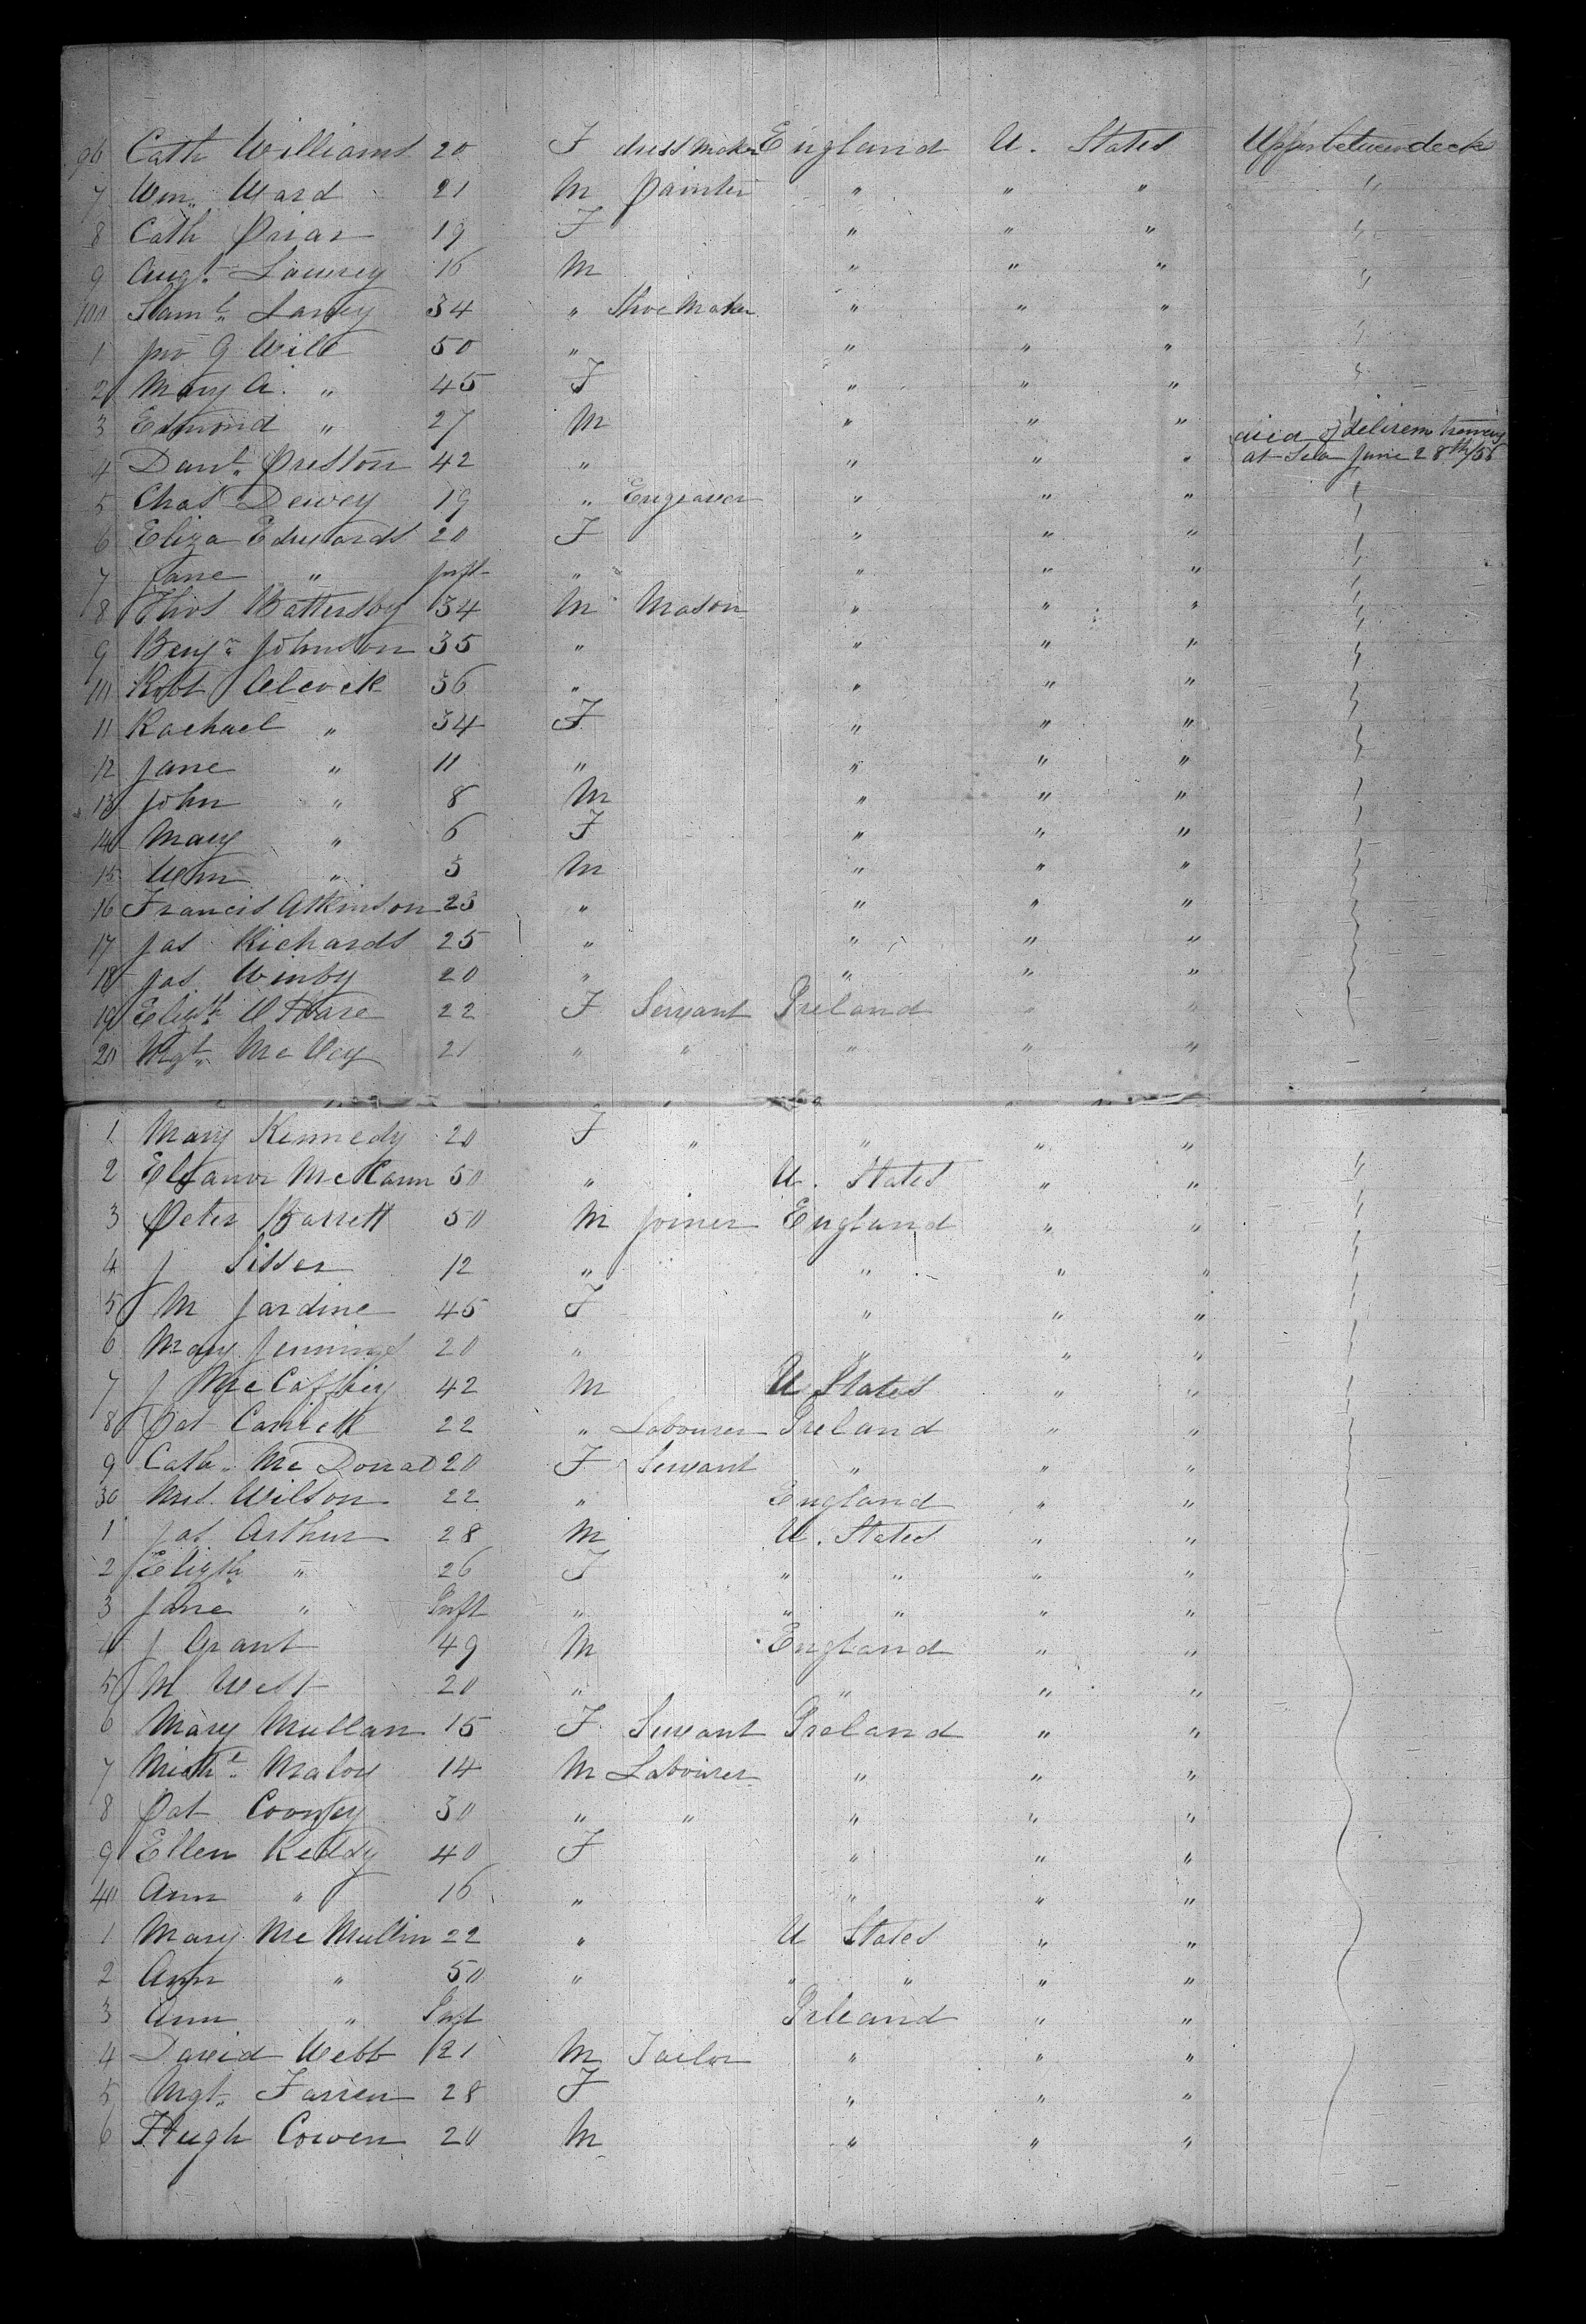 96 Cath Williams 20 F dressmaker England U. States Upper between deck
7 Wm. Ward 21 M painter " " " "
8 Cath Briar 19 F " " " "
9 Augt. 16 M " " " "
100 Saml. 34 " Shoe Maker " " " "
1 Jno G Wild 50 " " " " "
2 Mary A. " 45 F " " " "
3 Edmond " 27 M " " "
4 Danl. Preston 42 " " " " died of delirem tremens at Sea June 28th/56
5 Chas Dewey 19 " Engraver " " "
6 Eliza Edwards 20 F " " "
7 Jane " Inft " " " "
8 Thos Battersby 34 M Mason " " "
9 Benjn Johnson 35 " " " "
110 Robt Alcock 36 " " " "
11 Rachael " 34 F " " "
12 Jane " 11 " " " "
13 John " 8 M " " "
14 Mary " 6 F " " "
15 Wm " 3 M " " "
16 Francis Atkinson 23 " " " "
17 Jas Richards 25 " " " "
18 Jas. Winby 20 " " " "
19 Elizth O Hare 22 F Servant Ireland " "
20 Mgt. Mc Vey 21 " " " " "
1 Mary Kennedy 20 F " " " "
2 Eleanor McCann 50 " U. States " "
3 Peter Barrett 50 M Joiner England " "
4 J 12 " " " "
5 M Jardine 45 F " " "
6 Mary Jennings 20 " " " "
7 J McCaffrey 42 M U States " "
8 Pat 22 " Labourer Ireland " "
9 Cath. Mc Donal 20 F Servant " " "
30 Mrs. Wilson 22 " England " "
1 Jas. Arthur 28 M U. States " "
2 Elizth " 26 F " " " "
3 Jane " Inft " " " " "
4 J Grant 49 M England " "
5 M West 20 " " " "
6 Mary Mullan 15 F Servant Ireland " "
7 Michl. Maloy 14 M Labourer " " "
8 Pat Cooney 30 " " " " "
9 Ellen Keddy 40 F " " "
40 Ann " 16 " " " "
1 Mary Mc Mullin 22 " U States " "
2 Ann " 50 " " " " "
3 Ann " Inft Irleand " "
4 David Webb 21 M Tailor " " "
5 Mgt. Farren 28 F " " "
6 Hugh Cowen 20 M " " "